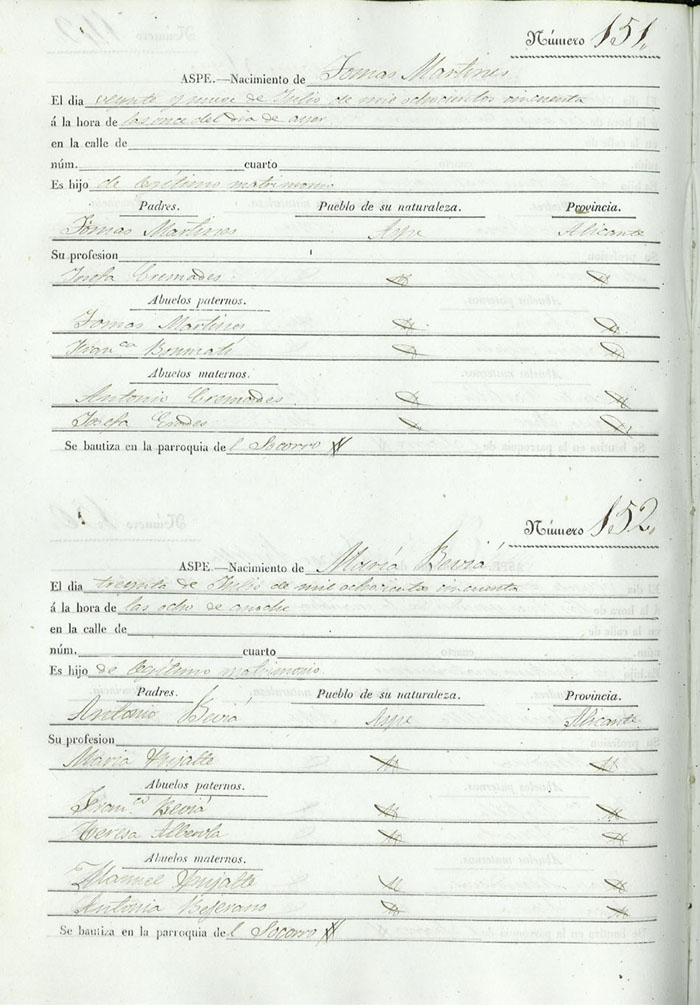 Número 151.
ASPE.—Nacimiento de Tomas Martines
El dia veynte y nueve de Julio de mil ochocientos cincuenta
á la hora de las once del dia de ayer
en la calle de
núm. cuarto
Es hijo de legitimo matrimonio
Padres. Pueblo de su naturaleza. Provincia.
Tomas Martines Aspe Alicante
Su profesion
Josefa Cremades
Abuelos paternos.
Tomas Martines
Fran.ca
Abuelos maternos.
Antonio Cremades
Josefa
Se bautiza en la parroquia del Socorro
Número 152.
ASPE.—Nacimiento de María Beviá
El dia treynta de Julio de mil ochocientos cincuenta
á la hora de las ocho de anoche
en la calle de
núm. cuarto
Es hijo de legitimo matrimonio
Padres. Pueblo de su naturaleza. Provincia.
Antonio Beviá Aspe Alicante
Su profesion
Maria
Abuelos paternos.
Fran.co Beviá
Teresa Alberola
Abuelos maternos.
Manuel
Antonia Bejerano
Se bautiza en la parroquia del Socorro